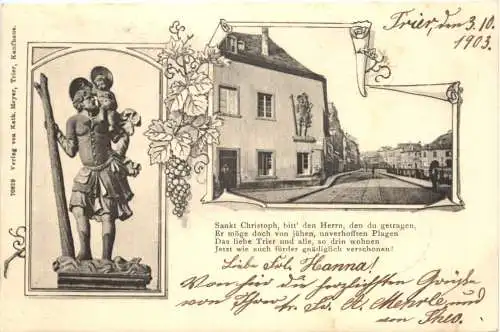 Trier, den 3.10.
1903.
70629 Verlag von Kath. Meyer, Trier, Kaufhaus.
Sankt Christoph, bitt' den Herrn, den du getragen,
Er möge doch von jähen, unverhofften Plagen
Das liebe Trier und alle, so drin wohnen
Jetzt wie auch fürder gnädiglich verschonen!
Liebe Frl. Hanna!
Von Ihr die herzlichsten Grüße
von Ihrer tr. Fr. A. Mehrle und
Theo.